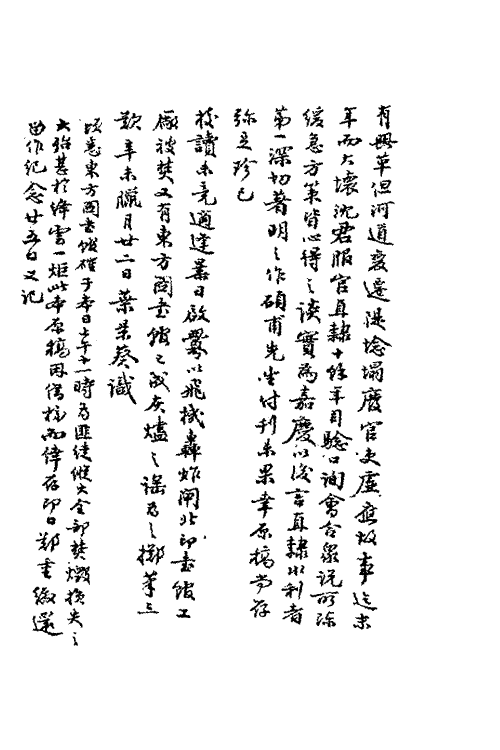 有興革但河道變遷隄埝塌廢官吏虛應故事迄未
年而大壞沈君服官直隸十餘年目驗口詢會合衆說所陳
緩急方策皆心得之談實爲嘉慶以後言直隸水利者
第一深切著明之作碩甫先生付刊未果幸原稿尚存
彌足珍已
校讀未竟適逢暴日啟釁以飛機轟炸閘北印書館工
廠被焚又有東方圖書館已成灰燼之謠爲之擲筆三
歎辛未臘月廿二日葉景葵識
頃悉東方圖書館確于本日上午十一時爲匪徒縱火全部焚燬損失之
大殆甚於絳雲一炬此本原稿因借校而倖存即日鄭重繳還
留作紀念廿五日又記